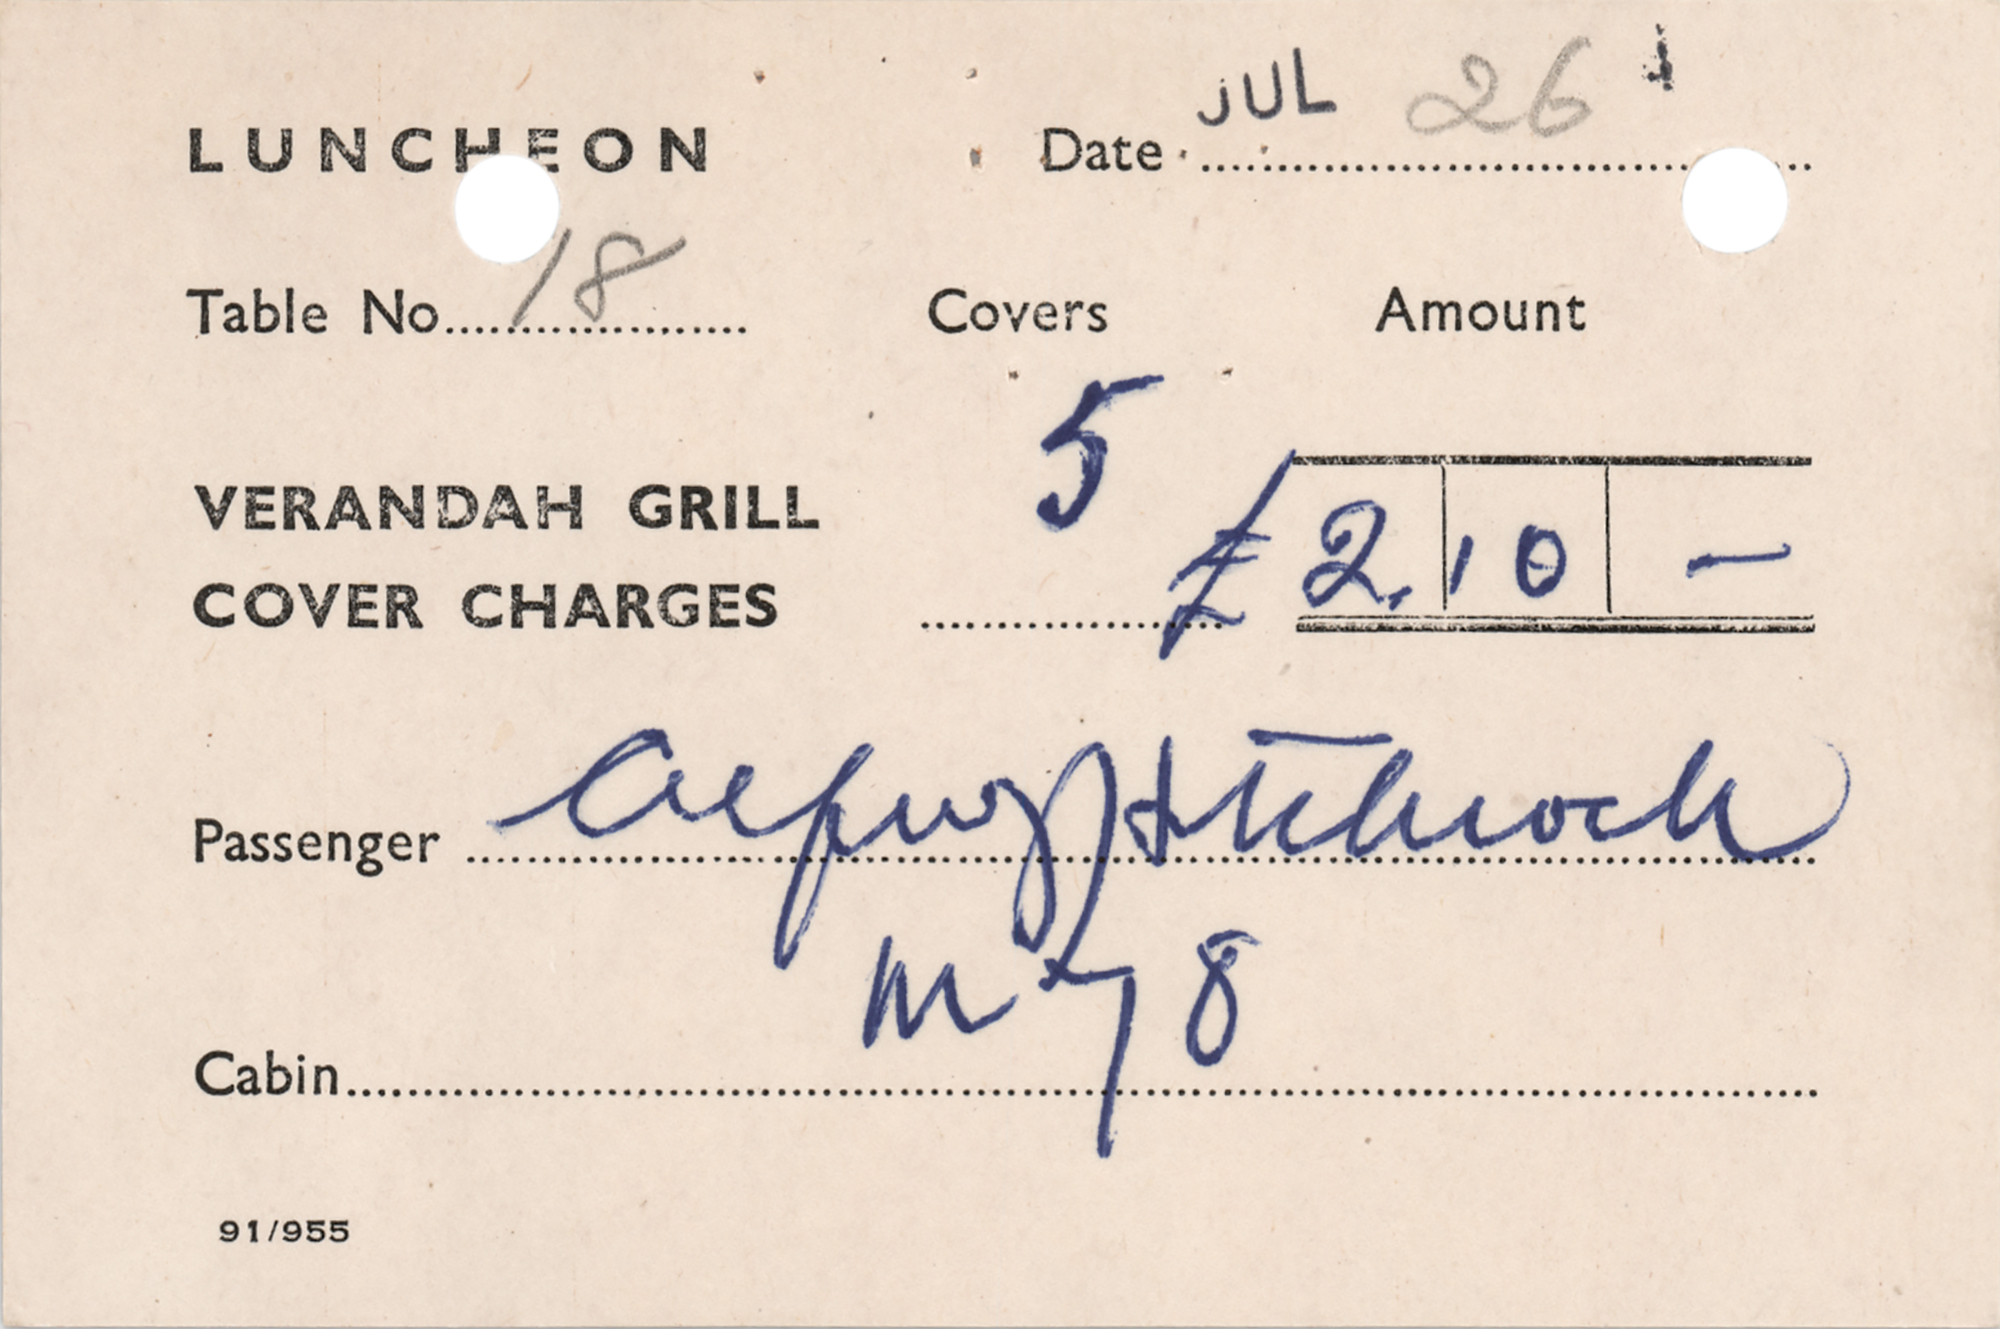 LUNCHEON Date JUL 26
Table No. 18 Covers Amount
5
VERANDAH GRILL
COVER CHARGES £ 2. 10 –
Passenger Alfred Hitchcock
Cabin M 78
91/955